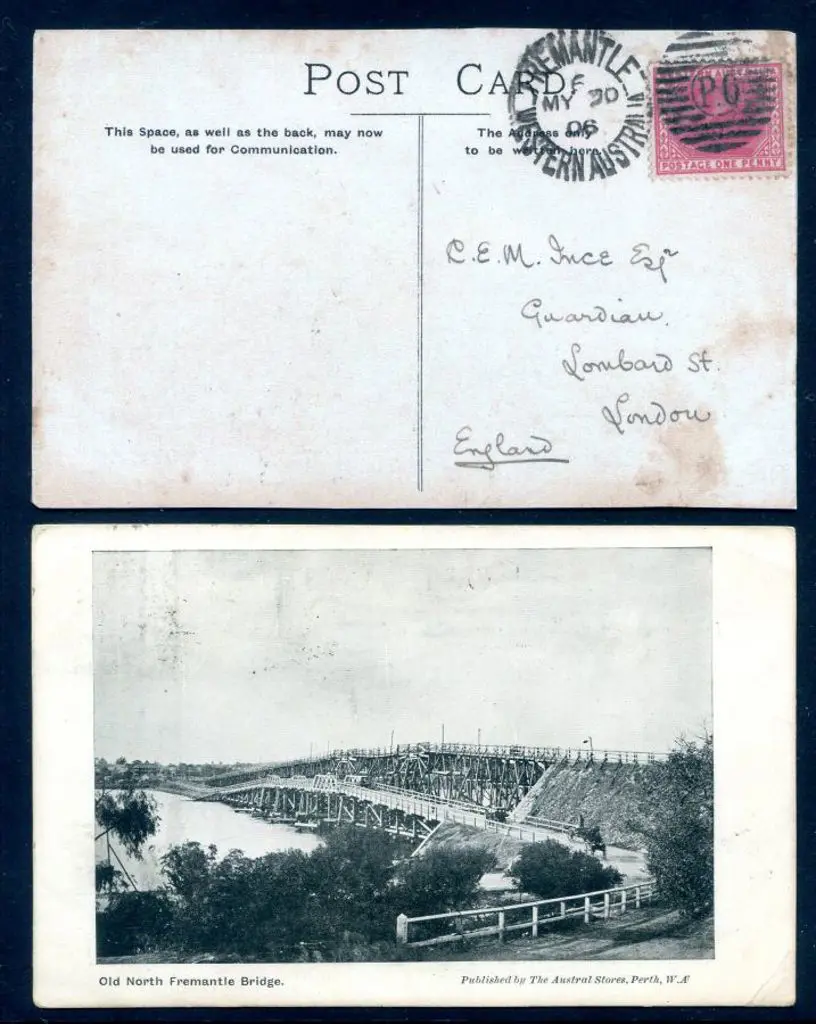 POST CARD
This Space, as well as the back, may now
be used for Communication.
The Address only
to be written here.
FREMANTLE
F
MY 30
06
WESTERN AUSTRALIA
P.O
POSTAGE ONE PENNY
C.E.M. Ince Esqr
Guardian.
Lombard St.
London
England
Old North Fremantle Bridge.
Published by The Austral Stores, Perth, W.A